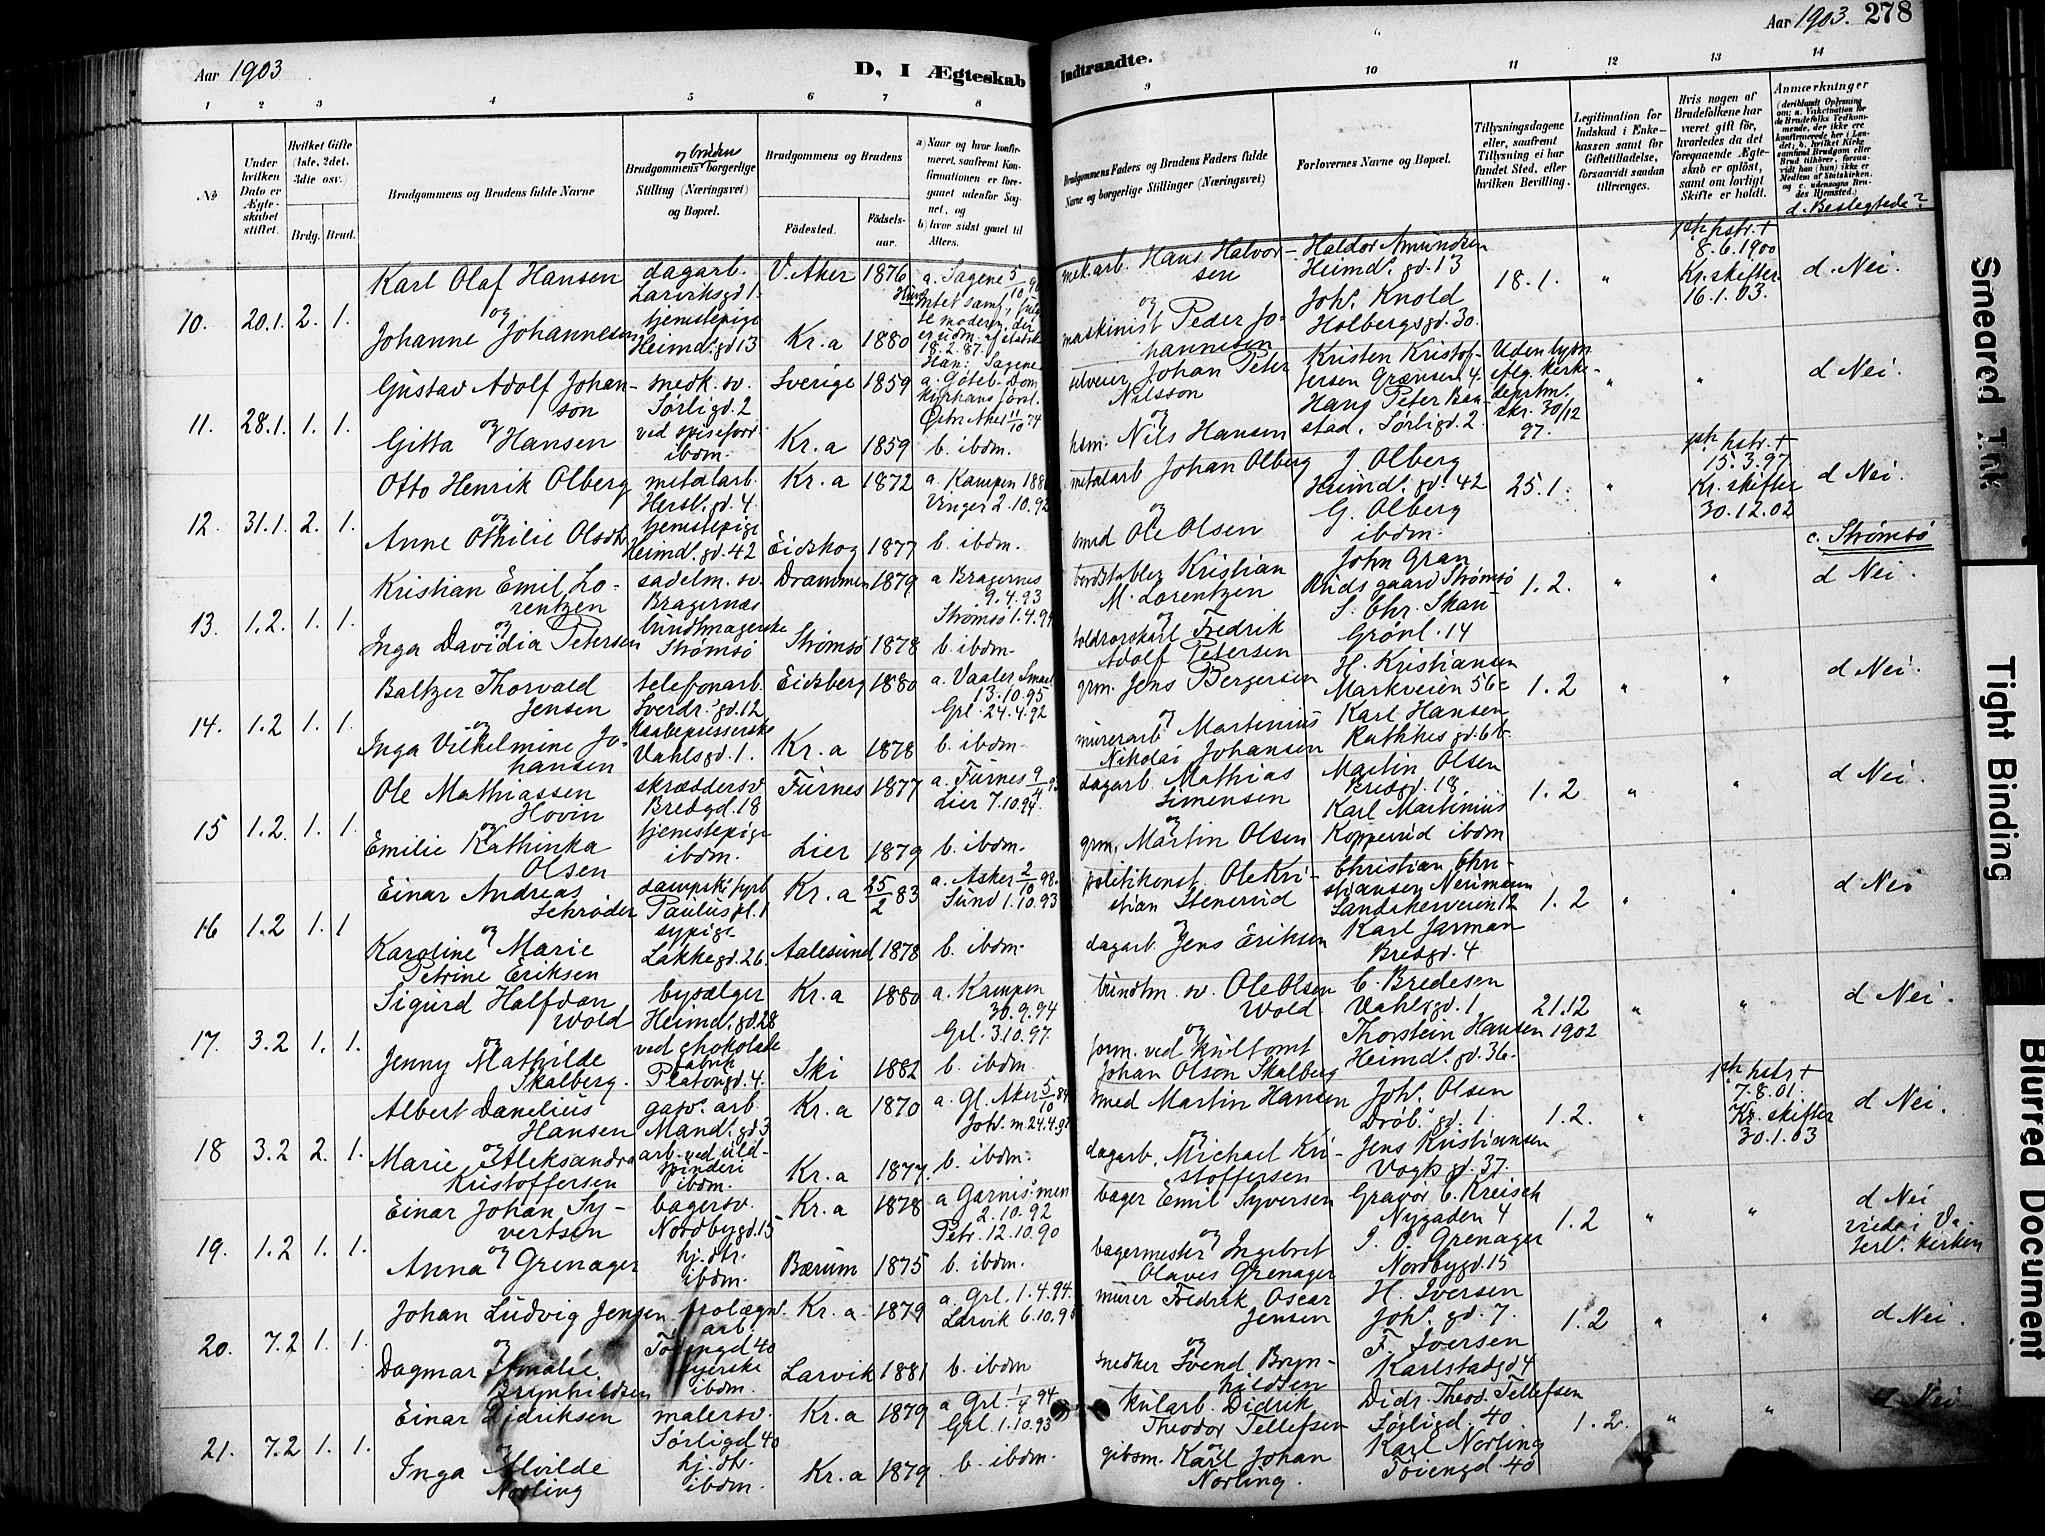 Aar 1903
D, I Ægteskab Indtraadte.
Aar 1903. 278
1 2 3 4 5 6 7 8 9 10 11 12 13 14
№
Under hvilken Dato er Ægteskabet stiftet.
Hvilket Gifte (1ste, 2det, 3die osv.)
Brdg. Brud.
Brudgommens og Brudens fulde Navne
og brudens
Brudgommens borgerlige Stilling (Næringsvei) og Bopæl.
Brudgommens og Brudens
Fødested.
Fødselsaar.
a) Naar og hvor konfirmeret, saafremt Konfirmationen er foregaaet udenfor Sognet, og
b) hvor sidst gaaet til Alters.
Brudgommens Faders og Brudens Faders fulde Navne og borgerlige Stillinger (Næringsvei)
Forlovernes Navne og Bopæl.
Tillysningsdagene eller, saafremt Tillysning ei har fundet Sted, efter hvilken Bevilling.
Legitimation for Indskud i Enkekassen samt for Giftetilladelse, forsaavidt saadan tiltrænges.
Hvis nogen af Brudefolkene har været gift før, hvorledes da det foregaaende Ægteskab er opløst, samt om lovligt Skifte er holdt.
Anmærkninger
d. Beslegtede?
10. 20.1. 2. 1.
Karl Olaf Hansen
og
Johanne Johannesen
dagarb.
Larviksgd 1.
tjenestepige
Heimd. gd 13
V. Aker 1876
Kr.a 1880
a. Sagene 5/10
18.2.87.
mek.arb. Hans Halvorsen
og
maskinist Peder Johannesen
Haldor Amundsen
Heimd. gd. 13
Joh. Knold
Holbergsgd. 30.
18.1. "
hstr. +
8.6.1900
Kr. skifter
16.1.03.
d. Nei.
11. 28.1. 1. 1.
Gustav Adolf Johanson
og
Gitta Hansen
snedk. sv.
Sørligd. 2
ved
ibdm.
Sverige 1859
Kr.a 1859
a. Göteb. Dom
b. ibdm.
Johan Peter
Nilsson
og
Nils Hansen
Kristen Kristoffersen Grænsen 4.
Hans Peter Baastad, Sørligd. 2.
Uden lysn.
30/12
97.
" "
d Nei.
12. 31.1. 2. 1.
Otto Henrik Olberg
og
Anne Othilie Olsdtr.
metalarb.
Hersl. gd. 4.
tjenestepige
Heimd. gd. 42
Kr.a 1872
Eidskog 1877
a. Kampen
Vinger 2.10.92
b. ibdm.
metalarb Johan Olberg
og
smed Ole Olsen
J Olberg
Heimd. gd. 42
G. Olberg
ibdm.
25.1. "
hstr. +
15.3.97
Kr. skifter
30.12.02
d Nei.
13. 1.2. 1. 1.
Kristian Emil Lorentzen
og
Inga Davidia Petersen
sadelm. sv.
Bragernæs
bundtmagerske
Strømsø
Drammen 1879
Strømsø 1878
a Bragernes
9.4.93
Strømsø 1.4.94
b. ibdm.
Kristian
M. Lorentzen
og
Fredrik
Adolf Petersen
John Gran
Strømsø
S. Chr. Skau
Grønl. 14
1.2. " "
c. Strømsø
d Nei.
14. 1.2 1. 1.
Baltzer Thorvald
Jensen
og
Inga Vilhelmine Johansen
telefonarb.
Sverdr. gd. 12
Kaabepresserske
Vahlsgd. 1.
Eidsberg 1880
Kr.a 1878
a. Vaaler Smaal
13.10.95
Grl. 24.4.92
b. ibdm.
grm. Jens Bergersen
og
murerarb Martinius
Nikolai Johansen
H. Kristiansen
Markveien 56c
Karl Hansen
Rathkes gd. 6b.
1.2 " "
d Nei.
15 1.2. 1. 1.
Ole Mathiassen
Hovin
og
Emilie Kathinka
Olsen
skræddersv.
Bredgd. 18
tjenestepige
ibdm.
Furnes 1877
Lier 1879
a. Furnes
Lier 7.10.94.
b. ibdm.
dagarb. Mathias
Simensen
og
grm. Martin Olsen
Martin Olsen
Bredgd. 18
Karl Martinius
Kopperud ibdm
1.2 " "
d Nei.
16 1.2 1. 1
Einar Andreas
Schrøder
og
Karoline Marie
Petrine Eriksen
dampsk. fyrb
Paulus pl. 1
sypige
Lakkegd. 26.
Kr.a 25/2 83
Aalesund 1878
a. Asker 2/10 98.
Sund 1.10.93
b. ibdm.
politikonst. Ole Kristian Stenerud
og
dagarb. Jens Eriksen
Christian Christiansen Neumann
Sandakerveien 12
Karl Jarman
Bredgd. 4
1.2 " "
d Nei
17. 3.2 1. 1.
Sigurd Halfdan
Wold
og
Jenny Mathilde
Skalberg.
bysælger
Heimd. gd. 28
ved chokolade
fabrik
Platougd. 4.
Kr.a 1880
Ski 1882
a. Kampen
30.9.94
Grl. 3.10.97.
b. ibdm.
buntm. sv. Ole Olsen
Wold.
og
form. ved
Johan Olson Skalberg
C. Bredesen
Vahlsgd. 1
Thorstein Hansen
Heimd. gd. 36.
21.12
1902
" "
d Nei.
18 3.2 2. 1.
Albert Danelius
Hansen
og
Marie Aleksandra
Kristoffersen
gasv. arb.
Mandl. gd 3
arb. ved uldspinderi
ibdm.
Kr.a 1870
Kr.a 1877.
a. Gl. Aker 5/10 84
b. ibdm.
smed Martin Hansen
og
dagarb. Michael Kristoffersen
Joh. Olsen
Drøb. gd. 1.
Jens Kristiansen
Vogts gd. 37.
1.2. "
hstr +
7.8.01.
Kr. skifter
30.1.03
d Nei.
19. 1.2 1. 1.
Einar Johan Syvertsen
og
Anna Grenager
bagersv.
Nordbygd. 15
hj. dtr.
ibdm.
Kr.a 1878
Bærum 1875
a Garnis. men
2.10.92
Petr. 12.10.90
b. ibdm.
bager Emil Syversen
og
bagermester Ingebret
Olaves Grenager
Gravør C. Kreisch
Nygaden 4
I. O. Grenager
Nordbygd. 15
1.2 " "
d Nei
viede i Vaterl. kirken
20. 7.2 1. 1.
Johan Ludvig Jensen
og
Dagmar Amalie
Brynhildsen
arb.
Tøiengd 40
syerske
ibdm.
Kr.a 1879
Larvik 1881
a. Grl. 1.4.94.
Larvik 6.10.95
b. ibdm
murer Fredrik Oscar
Jensen
og
snedker Svend Brynhildsen
H. Iversen
Joh. gd. 7.
F. Iversen
Karlstadgd 4
1.2 " "
d Nei.
21. 7.2 1. 1.
Einar Didriksen
og
Inga Alvilde
Norling
malersv.
Sørligd 40
hj. dtr.
ibdm.
Kr.a 1879
Kr.a 1879.
a Grl. 1/4 94
Grl. 1.10.93
b. ibdm.
kularb. Didrik
Theodor Tellefsen
og
gibsm. Karl Johan
Norling.
Didr. Theod. Tellefsen
Sørligd. 40
Karl Norling
Tøiengd. 40
1.2. " "
d Nei
Smeared Ink
Tight Binding
Blurred Document